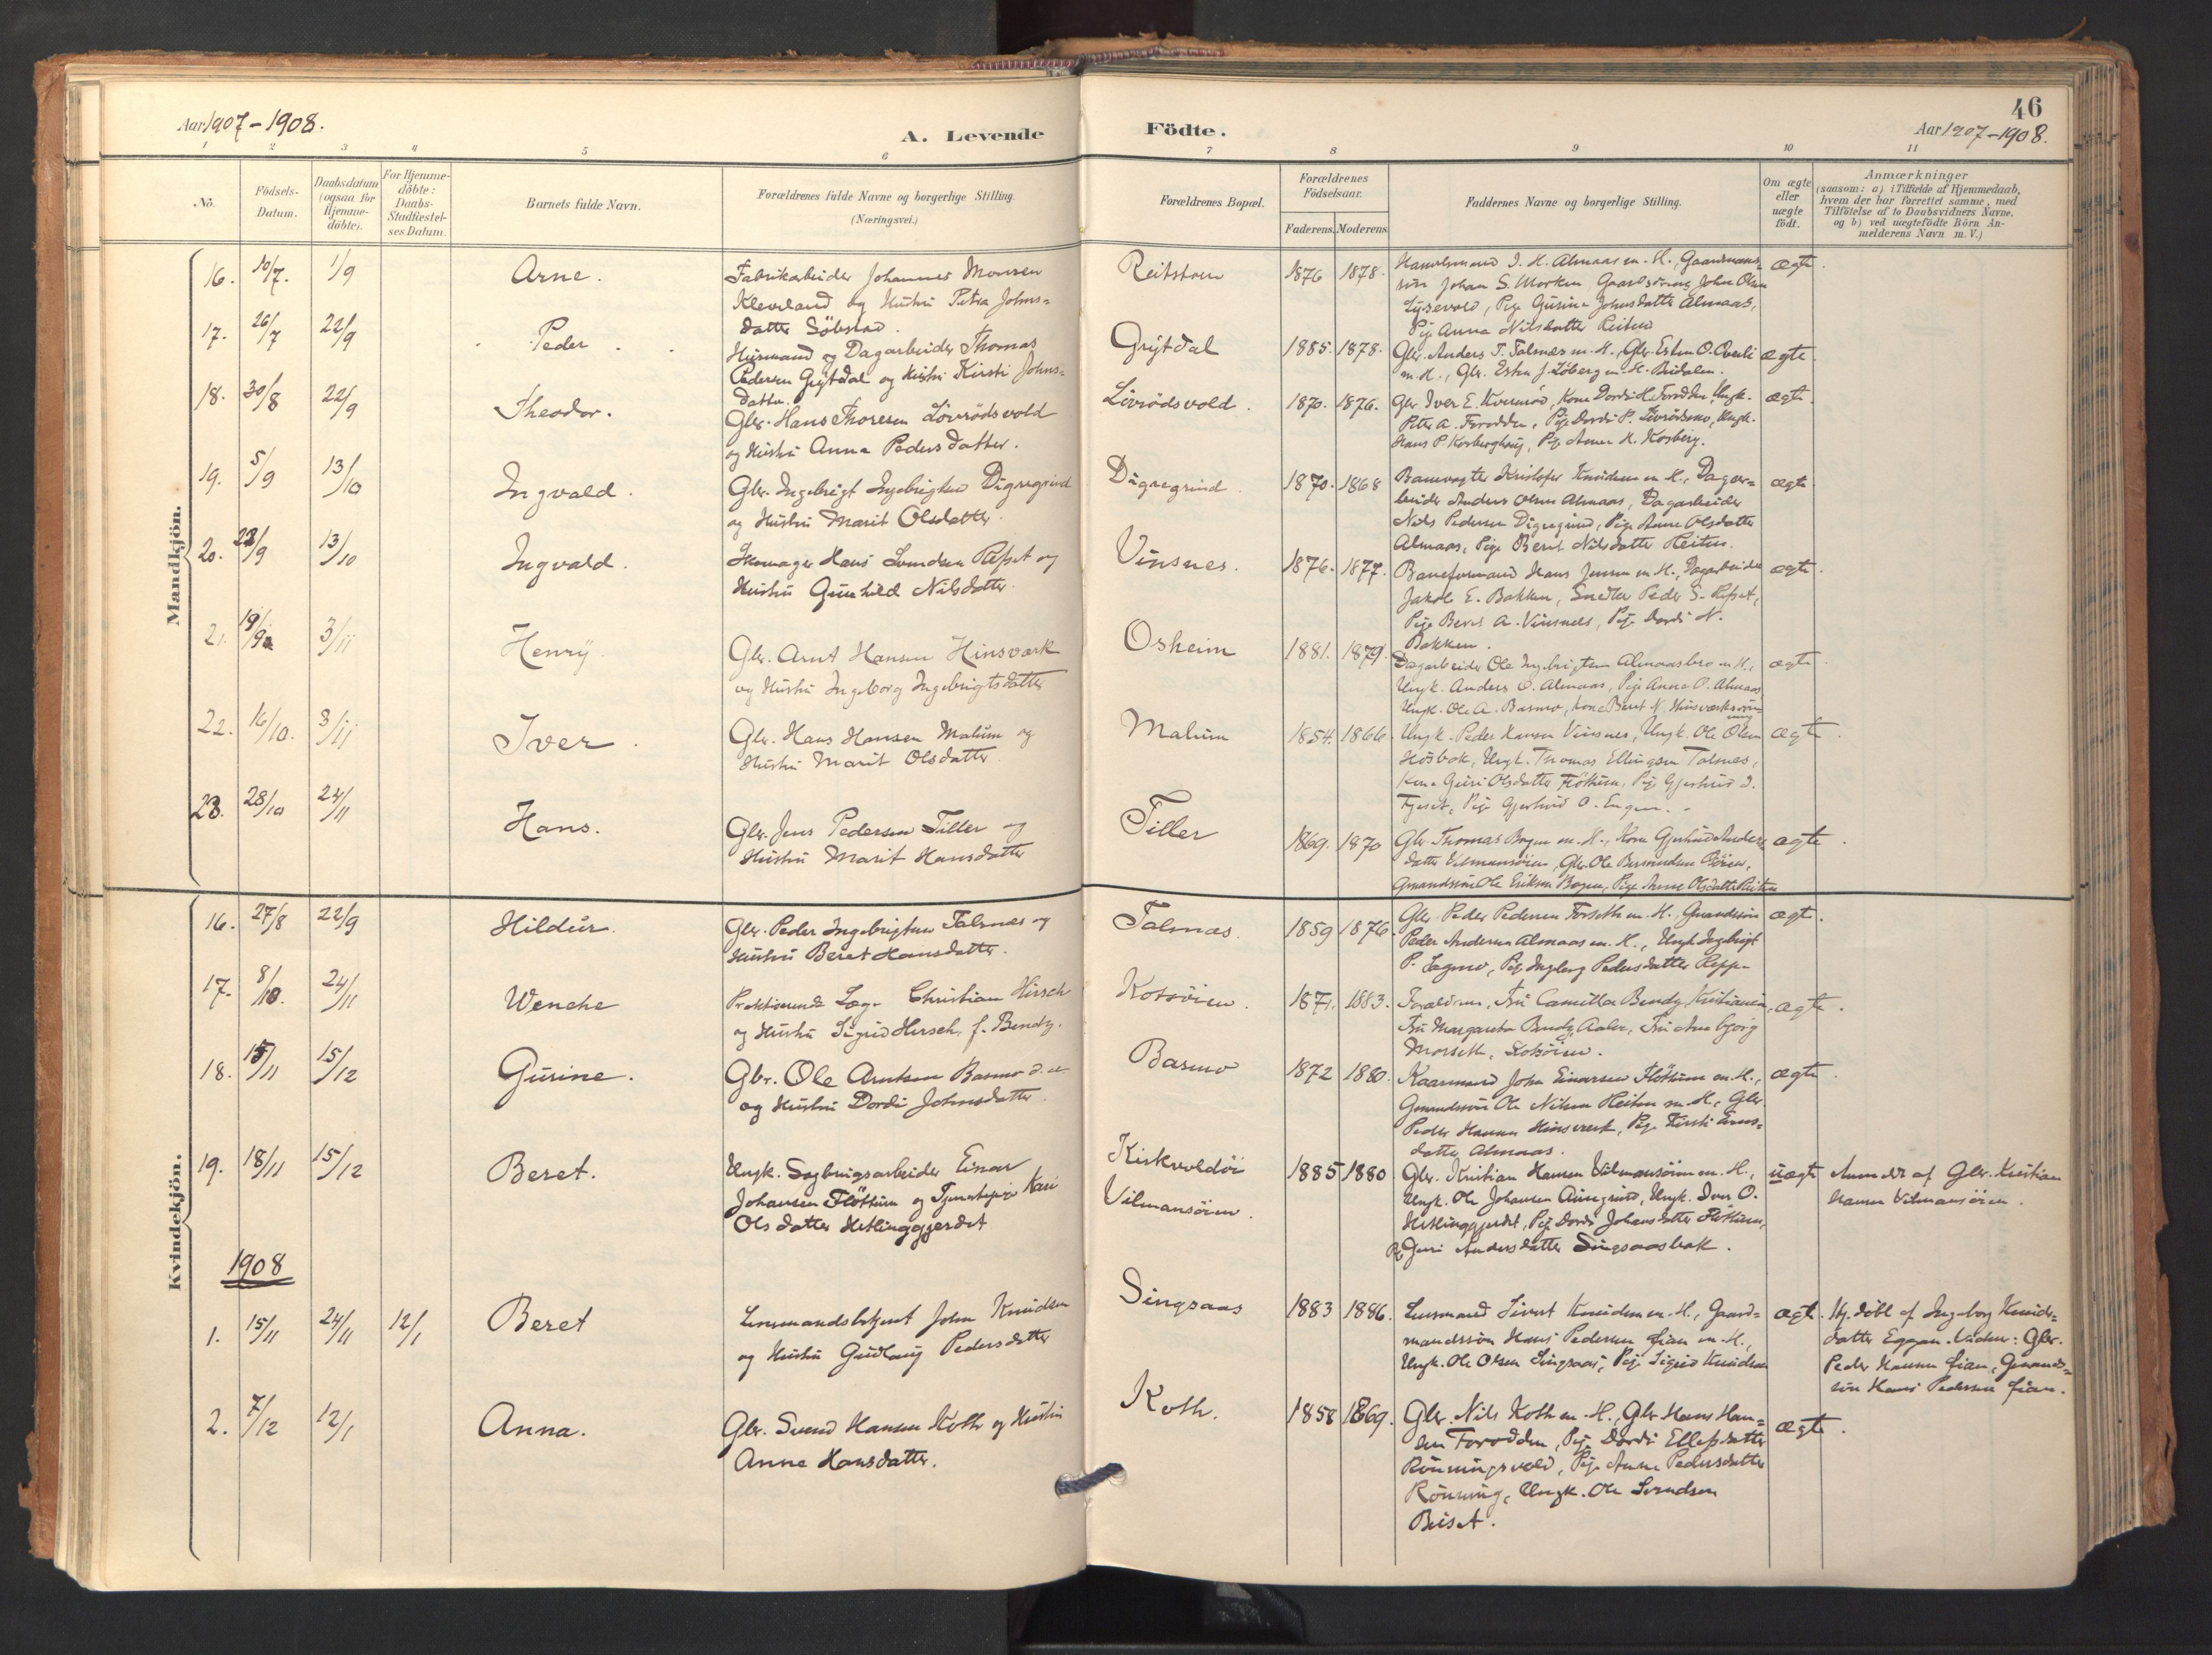 46
Aar 1907-1908.
A. Levende Födte.
Aar 1907-1908.
1 2 3 4 5 6 7 8 9 10 11
No.
Födsels-
Datum.
Daabsdatum
(ogsaa for
Hjemme-
döbte).
For Hjemme-
döbte:
Daabs-
Stadfæstel-
ses Datum.
Barnets fulde Navn.
Forældrenes fulde Navne og borgerlige Stilling.
(Næringsvei.)
Forældrenes Bopæl.
Forældrenes
Födselsaar.
Faderens. Moderens
Faddernes Navne og borgerlige Stilling.
Om ægte
eller
uægte
födt.
Anmærkninger
(saasom: a) i Tilfælde af Hjemmedaab,
hvem der har forrettet samme, med
Tilföielse af to Daabsvidners Navne,
og b) ved uægtefödte Börn An-
melderens Navn m. V.)
Mandkjön.
16. 10/7. 1/9 Arne.
Fabrikarbeider Johannes Monsen
Kleveland og Hustru Petra Johns-
datter Söbstad.
Reitstrøen 1876 1878.
Handelsmand I. H. Almaas m. H., Gaardmands-
søn Johan S. Morken
Pige Gurine Johnsdatter Almaas,
Pige Anna Nilsdatter Reiten
ægte.
17. 26/7 22/9 Peder
Husmand og Dagarbeider Thomas
Pedersen Grytdal og Hustru Kirsti Johns-
datter.
Grytdal 1885. 1878.
Gbr. Anders T. Talmæs m. H., Gbr. Esten O. Overli
m. H., Gbr. Esten J. Löberg m. H. Budalen.
ægte.
18. 30/8 22/9 Theodor.
Gbr. Hans Thoresen Lövrödsvold
og Hustru Anna Pedersdatter.
Livrödsvold. 1870. 1876.
Gbr. Iver E. Kvernrød, Kone Dordi H. Forodden, Ungk.
Peter A. Forodden, Pige Dordi P. Livrödsmo, Ungk.
Hans P. Kosberghaug, Pige Anne H. Kosberg.
ægte.
19. 5/9 13/10 Ingvald.
Gbr. Ingebrigt Ingebrigtsen Digregrind
og Hustru Marit Olsdatter.
Digregrind 1870. 1868
Banevogter Kristofer Knudsen m. H., Dagar-
beider Anders Olsen Almaas, Dagarbeider
Nils Pedersen Digregrind, Pige Anne Olsdatter
Almaas, Pige Berit Nilsdatter Reiten.
ægte
20. 22/9 13/10 Ingvald.
Skomager Hans Svendsen Refset og
Hustru Gunhild Nilsdatter.
Vinsnes. 1876. 1877.
Baneformand Hans Jensen m. H., Dagarbeider
Jakob E. Bakken, Snedker Peder S. Refset,
Pige Beret A. Vinsnes, Pige Dordi N.
Bakken.
ægte.
21. 19/9 3/11 Henry.
Gbr. Arnt Hansen Hinsværk
og Hustru Ingeborg Ingebrigtsdatter
Osheim 1881. 1879.
Dagarbeider Ole Ingebrigtsen Almaasbro m. H.,
Ungk. Anders O. Almaas, Pige Anna O. Almaas
Ungk. Ole A. Basmo, Kone Beret N.
ægte
22. 16/10. 3/11 Iver.
Gbr. Hans Hansen Malum og
Hustru Marit Olsdatter.
Malum 1854. 1866.
Ungk. Peder Hansen Vinsnes, Ungk. Ole Olsen
Hösbak, Ungk. Thomas Ellingsen Talmæs,
Kone Guri Olsdatter Flöttum, Pige Gjertrud I.
Fjeset, Pige Gjertrud O. Engen.
ægte.
23. 28/10 24/11 Hans.
Gbr. Jens Pedersen Tiller og
Hustru Marit Hansdatter
Tiller 1869. 1870
Gbr. Thomas Bogen m. H., Kone Gjertrud Anders-
datter Vilmansöien, Gbr. Ole Bersvendsen Röien,
Gmandssön Ole Eriksen Bogen, Pige Anne Olsdatter Reiten
ægte.
Kvindekjön.
16. 27/8 22/9 Hildur.
Gbr. Peder Ingebrigtsen Talmæs og
Hustru Beret Hansdatter.
Talmæs. 1859 1876.
Gbr. Peder Pedersen Forseth m. H., Gmandssön
Peder Andersen Almaas m. H., Ungk. Ingebrigt
P. Lagmo, Pige Ingeborg Pedersdatter Repp.
ægte.
17. 8/10. 24/11 Wenche
Praktiserende Læge Christian Hirsch
og Hustru Sigrid Hirsch, f. Bendz.
Kotsöien. 1871. 1883.
Forældrene, Fru Camilla Bendz, Kristiania,
Fru Margaretha Bendz, Aalen, Fru Anebjørg
Morseth, Kotsöien.
ægte.
18. 15/11 15/12 Gurine.
Gbr. Ole Arntsen Basmo
og Hustru Dordi Johnsdatter.
Basmo 1872 1880.
Kaarmand John Einarsen Flöttum m. H.,
Gmandssön Ole Nilsen Reiten m. H., Gbr.
Peder Hansen Hinsværk, Pige Kirsti Arns-
datter Almaas.
ægte
19. 18/11 15/12 Beret.
Ungk. Sagbrugsarbeider Einar
Johansen Flöttum og Tjenestepige Kari
Olsdatter Hetlinggjerdet
Kirkvoldöi
Vilmansöien. 1885 1880
Gbr. Kristian Hansen Vilmansöien m. H.,
Ungk. Ole Johansen Aunegrind, Ungk. Iver O.
Hetlinggjerdet, Pige Dordi Johansdatter Flöttum,
Pige Guri Andersdatter Singsaasbak.
uægte
Anmeldt af Gbr. Kristian
Hansen Vilmansöien.
1908
1. 15/11 24/11 12/1 Beret
Lensmandsbetjent John Knudsen
og Hustru Gudlaug Pedersdatter
Singsaas 1883 1886.
Lensmand Sivert Knudsen m. H., Gaard-
mandssön Hans Pedersen Lian m. H.,
Ungk. Ole Olsen Singsaas, Pige Sigrid Knudsen
ægte.
Hj. döbt af Ingeborg Knuds-
datter Eggan. Vidner: Gbr.
Peder Hansen Lian, Gmands-
sön Hans Pedersen Lian.
2. 7/12 12/1 Anna.
Gbr. Svend Hansen Koth og Hustru
Anne Hansdatter.
Koth. 1858 1869.
Gbr. Nils Koth m. H., Gbr. Hans Han-
sen Forodden, Pige Dordi Ellefsdatter
Rönningsvold, Pige Anne Pedersdatter
Rönning, Ungk. Ole Svendsen
Buset.
ægte.